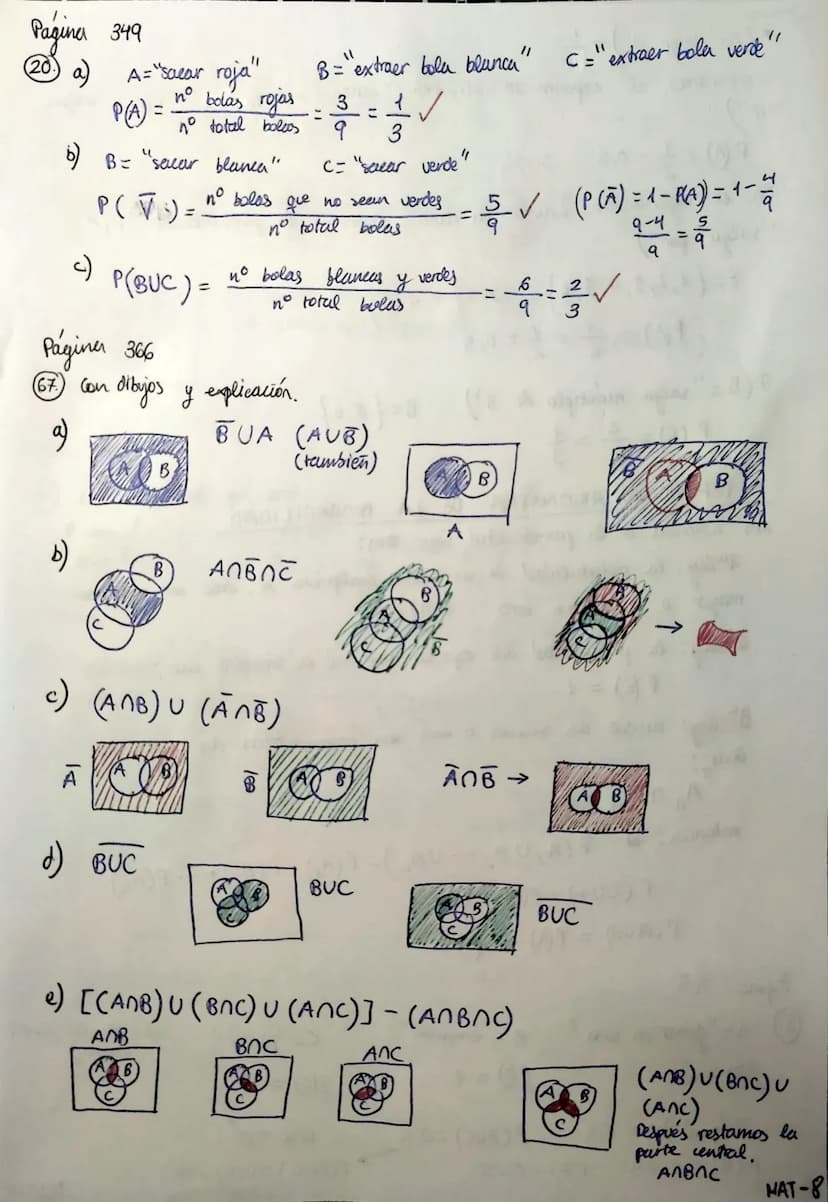 Página 349
20. a) A = "sacar roja" B = "extraer bola blanca" C = "extraer bola verde"
P(A) = nº bolas rojas / nº total bolas = 3/9 = 1/3 ✓
b) B = "sacar blanca" C = "sacar verde"
P(V̅) = nº bolas que no sean verdes / nº total bolas = 5/9 ✓ (P(A̅) = 1 - P(A)) = 1 - 4/9
9-4/9 = 5/9
c) P(B∪C) = nº bolas blancas y verdes / nº total bolas = 6/9 = 2/3 ✓
Página 366
67. Con dibujos y explicación.
a) A B B̅ ∪ A (A∪B̅) A B B̅ A B
(también)
A
b) A B C A∩B̅∩C̅ A B C B̅ A B C →
c) (A∩B) ∪ (A̅∩B̅)
A̅ A B B̅ A B A̅∩B̅ → A B
d) B∪C̅
A B C B∪C A B C B∪C̅
e) [(A∩B) ∪ (B∩C) ∪ (A∩C)] - (A∩B∩C)
A∩B B∩C A∩C
A B C A B C A B C A B C (A∩B)∪(B∩C)∪
(A∩C)
Después restamos la
parte central.
A∩B∩C
MAT-8